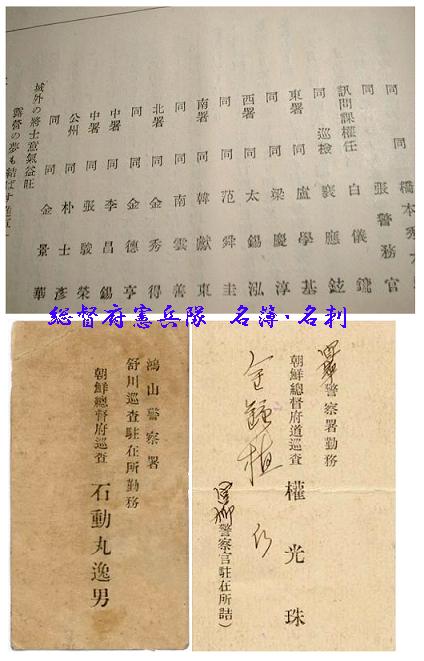 同 同 橋本秀
同 張警務官
訊問課權任 白儀
同 巡檢 裵應鉉
東署 同 盧學基
同 同 梁慶淳
西署 同 太錫泓
同 同 范舜圭
南署 同 韓獻東
同 同 南雲善
北署 同 金秀得
同 同 金德亨
中署 同 李昌錫
中署 同 張駿榮
公州 同 朴士彥
同 同 金景華
城外の將士意氣益旺
露營の夢も結ばず
総督府憲兵隊 名簿·名刺
鴻山警察署
舒川巡査駐在所勤務
朝鮮總督府巡査 石動丸逸男
警察署勤務
朝鮮總督府道巡査 權光珠
金鍾植
警察官駐在所詰)